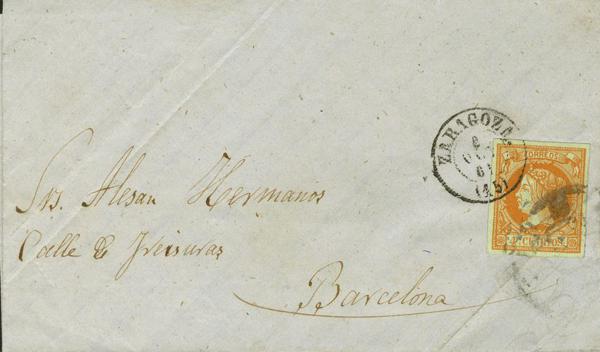 ZARAGOZA
6
61
(45)
CORREOS
4 CUARTOS
Srs. Alesan Hermanos
Calle de Freisuras
Barcelona